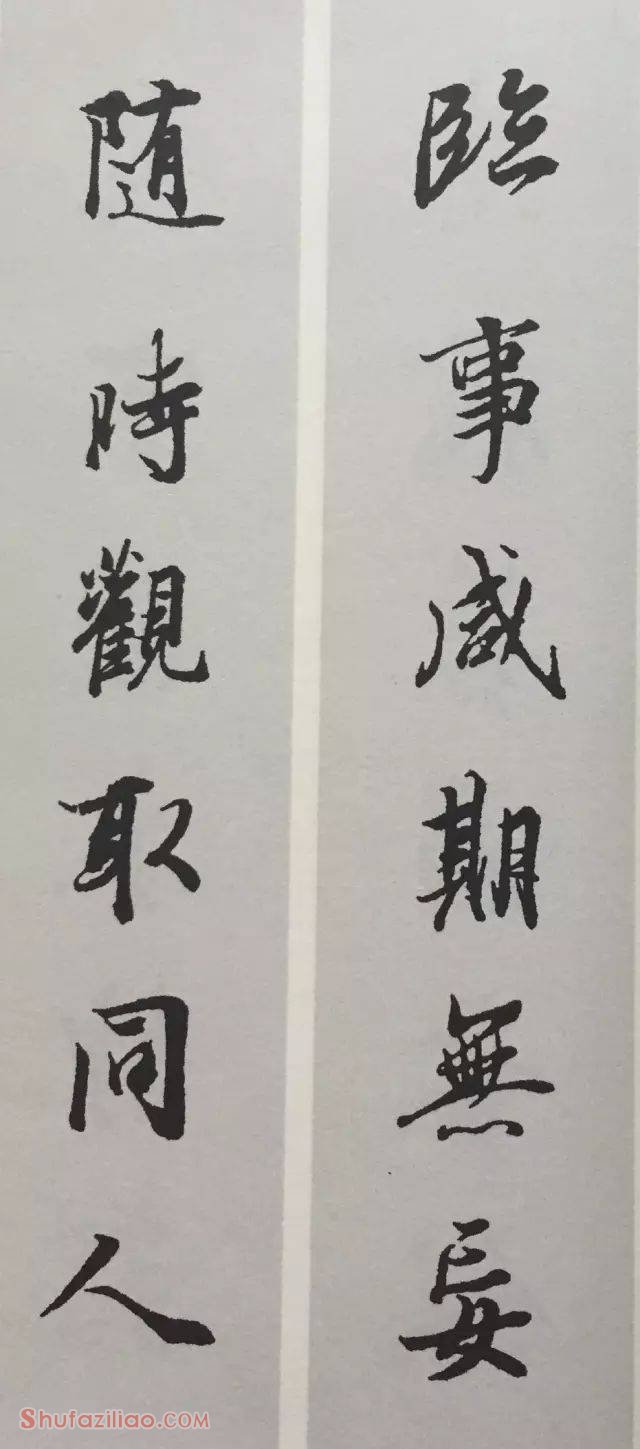 臨事咸期無妄
随時觀取同人
Shufaziliao.COM